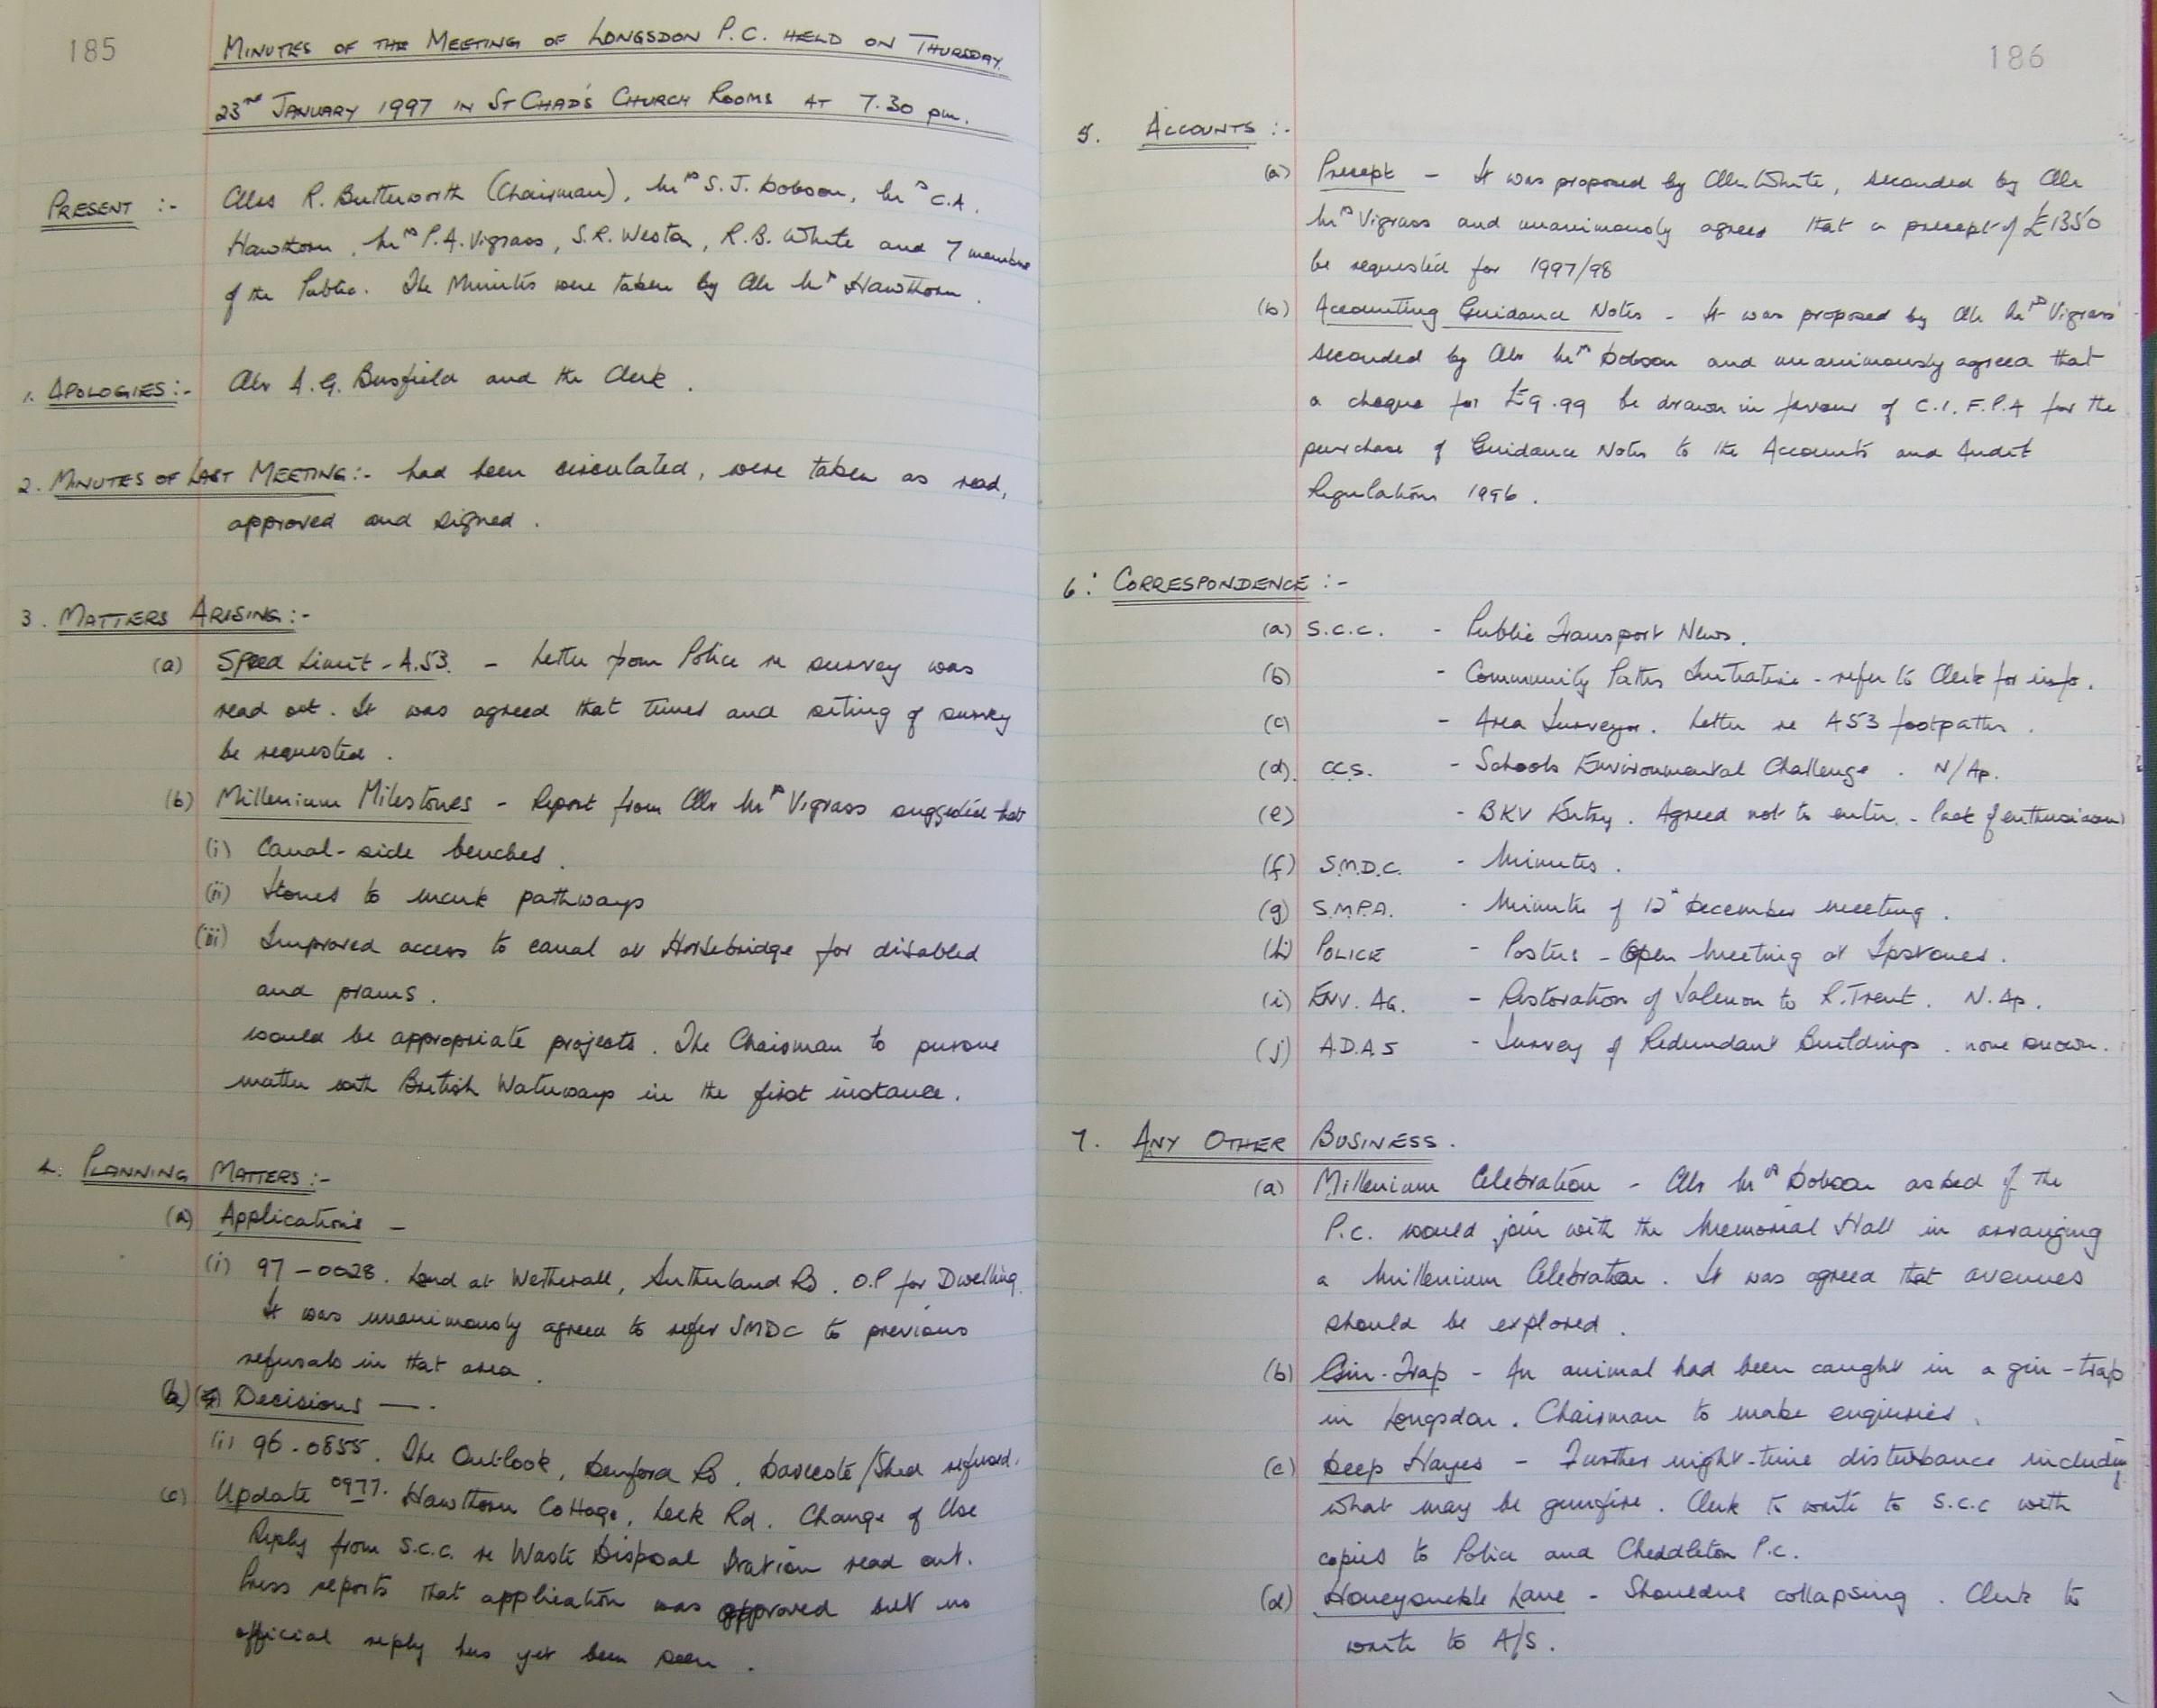 185
MINUTES OF THE MEETING OF LONGSDON P.C. HELD ON THURSDAY
23RD JANUARY 1997 IN ST CHAD'S CHURCH ROOMS AT 7.30 pm.
PRESENT :- Cllrs R. Butterworth (Chairman), Mrs S.J. Dobson, Mrs C.A.
Hawthorn, Mrs P.A. Vigrass, S.R. Weston, R.B. White and 7 members
of the Public. The Minutes were taken by Cllr Mrs Hawthorn.
1. APOLOGIES:- Cllr A.G. Busfield and the Clerk.
2. MINUTES OF LAST MEETING:- had been circulated, were taken as read,
approved and signed.
3. MATTERS ARISING:-
(a) Speed Limit - A.53. - Letter from Police re survey was
read out. It was agreed that times and siting of survey
be requested.
(b) Millenium Milestones - Report from Cllr Mrs Vigrass suggested that
(i) Canal-side benches.
(ii) Stones to mark pathways
(iii) Improved access to canal at Horsebridge for disabled
and prams.
would be appropriate projects. The Chairman to pursue
matter with British Waterways in the first instance.
4. PLANNING MATTERS:-
(a) Applications -
(i) 97-0028. Land at Wetherall, Sutherland Rd. O.P for Dwelling.
It was unanimously agreed to refer SMDC to previous
refusals in that area.
(b) Decisions -.
(i) 96-0855. The Outlook, Denford Rd. Dovecote/Shed refused.
(c) Update 0977. Hawthorn Cottage, Leek Rd. Change of Use
Reply from S.C.C. re Waste Disposal Station read out.
Press reports that application was approved but no
official reply has yet been seen.
186
5. ACCOUNTS :-
(a) Precept - It was proposed by Cllr White, seconded by Cllr
Mrs Vigrass and unanimously agreed that a precept of £1350
be requested for 1997/98
(b) Accounting Guidance Notes - It was proposed by Cllr Mrs Vigrass
seconded by Cllr Mrs Dobson and unanimously agreed that
a cheque for £9.99 be drawn in favour of C.I.F.P.A for the
purchase of Guidance Notes to the Accounts and Audit
Regulations 1996.
6. CORRESPONDENCE :-
(a) S.C.C. - Public Transport News.
(b) - Community Paths Initiative - refer to Clerk for info.
(c) - Area Surveyor. Letter re A53 footpaths.
(d). C.C.S. - Schools Environmental Challenge. N/Ap.
(e) - BKV Entry. Agreed not to enter. - lack of enthusiasm
(f) S.M.D.C. - Minutes.
(g) S.M.P.A. - Minutes of 12th December meeting.
(h) POLICE - Posters - Open Meeting at Ipstones.
(i) ENV. AG. - Restoration of Salmon to R. Trent. N. Ap.
(j) A.D.A.S - Survey of Redundant Buildings. none known.
7. ANY OTHER BUSINESS.
(a) Millenium Celebration - Cllr Mrs Dobson asked if the
P.C. would join with the Memorial Hall in arranging
a Millenium Celebration. It was agreed that avenues
should be explored.
(b) Gin-Trap - An animal had been caught in a gin-trap
in Longsdon. Chairman to make enquiries.
(c) Deep Hayes - Further night-time disturbance including
what may be gunfire. Clerk to write to S.C.C with
copies to Police and Cheddleton P.C.
(d) Honeysuckle Lane - Shoulders collapsing. Clerk to
write to A/S.